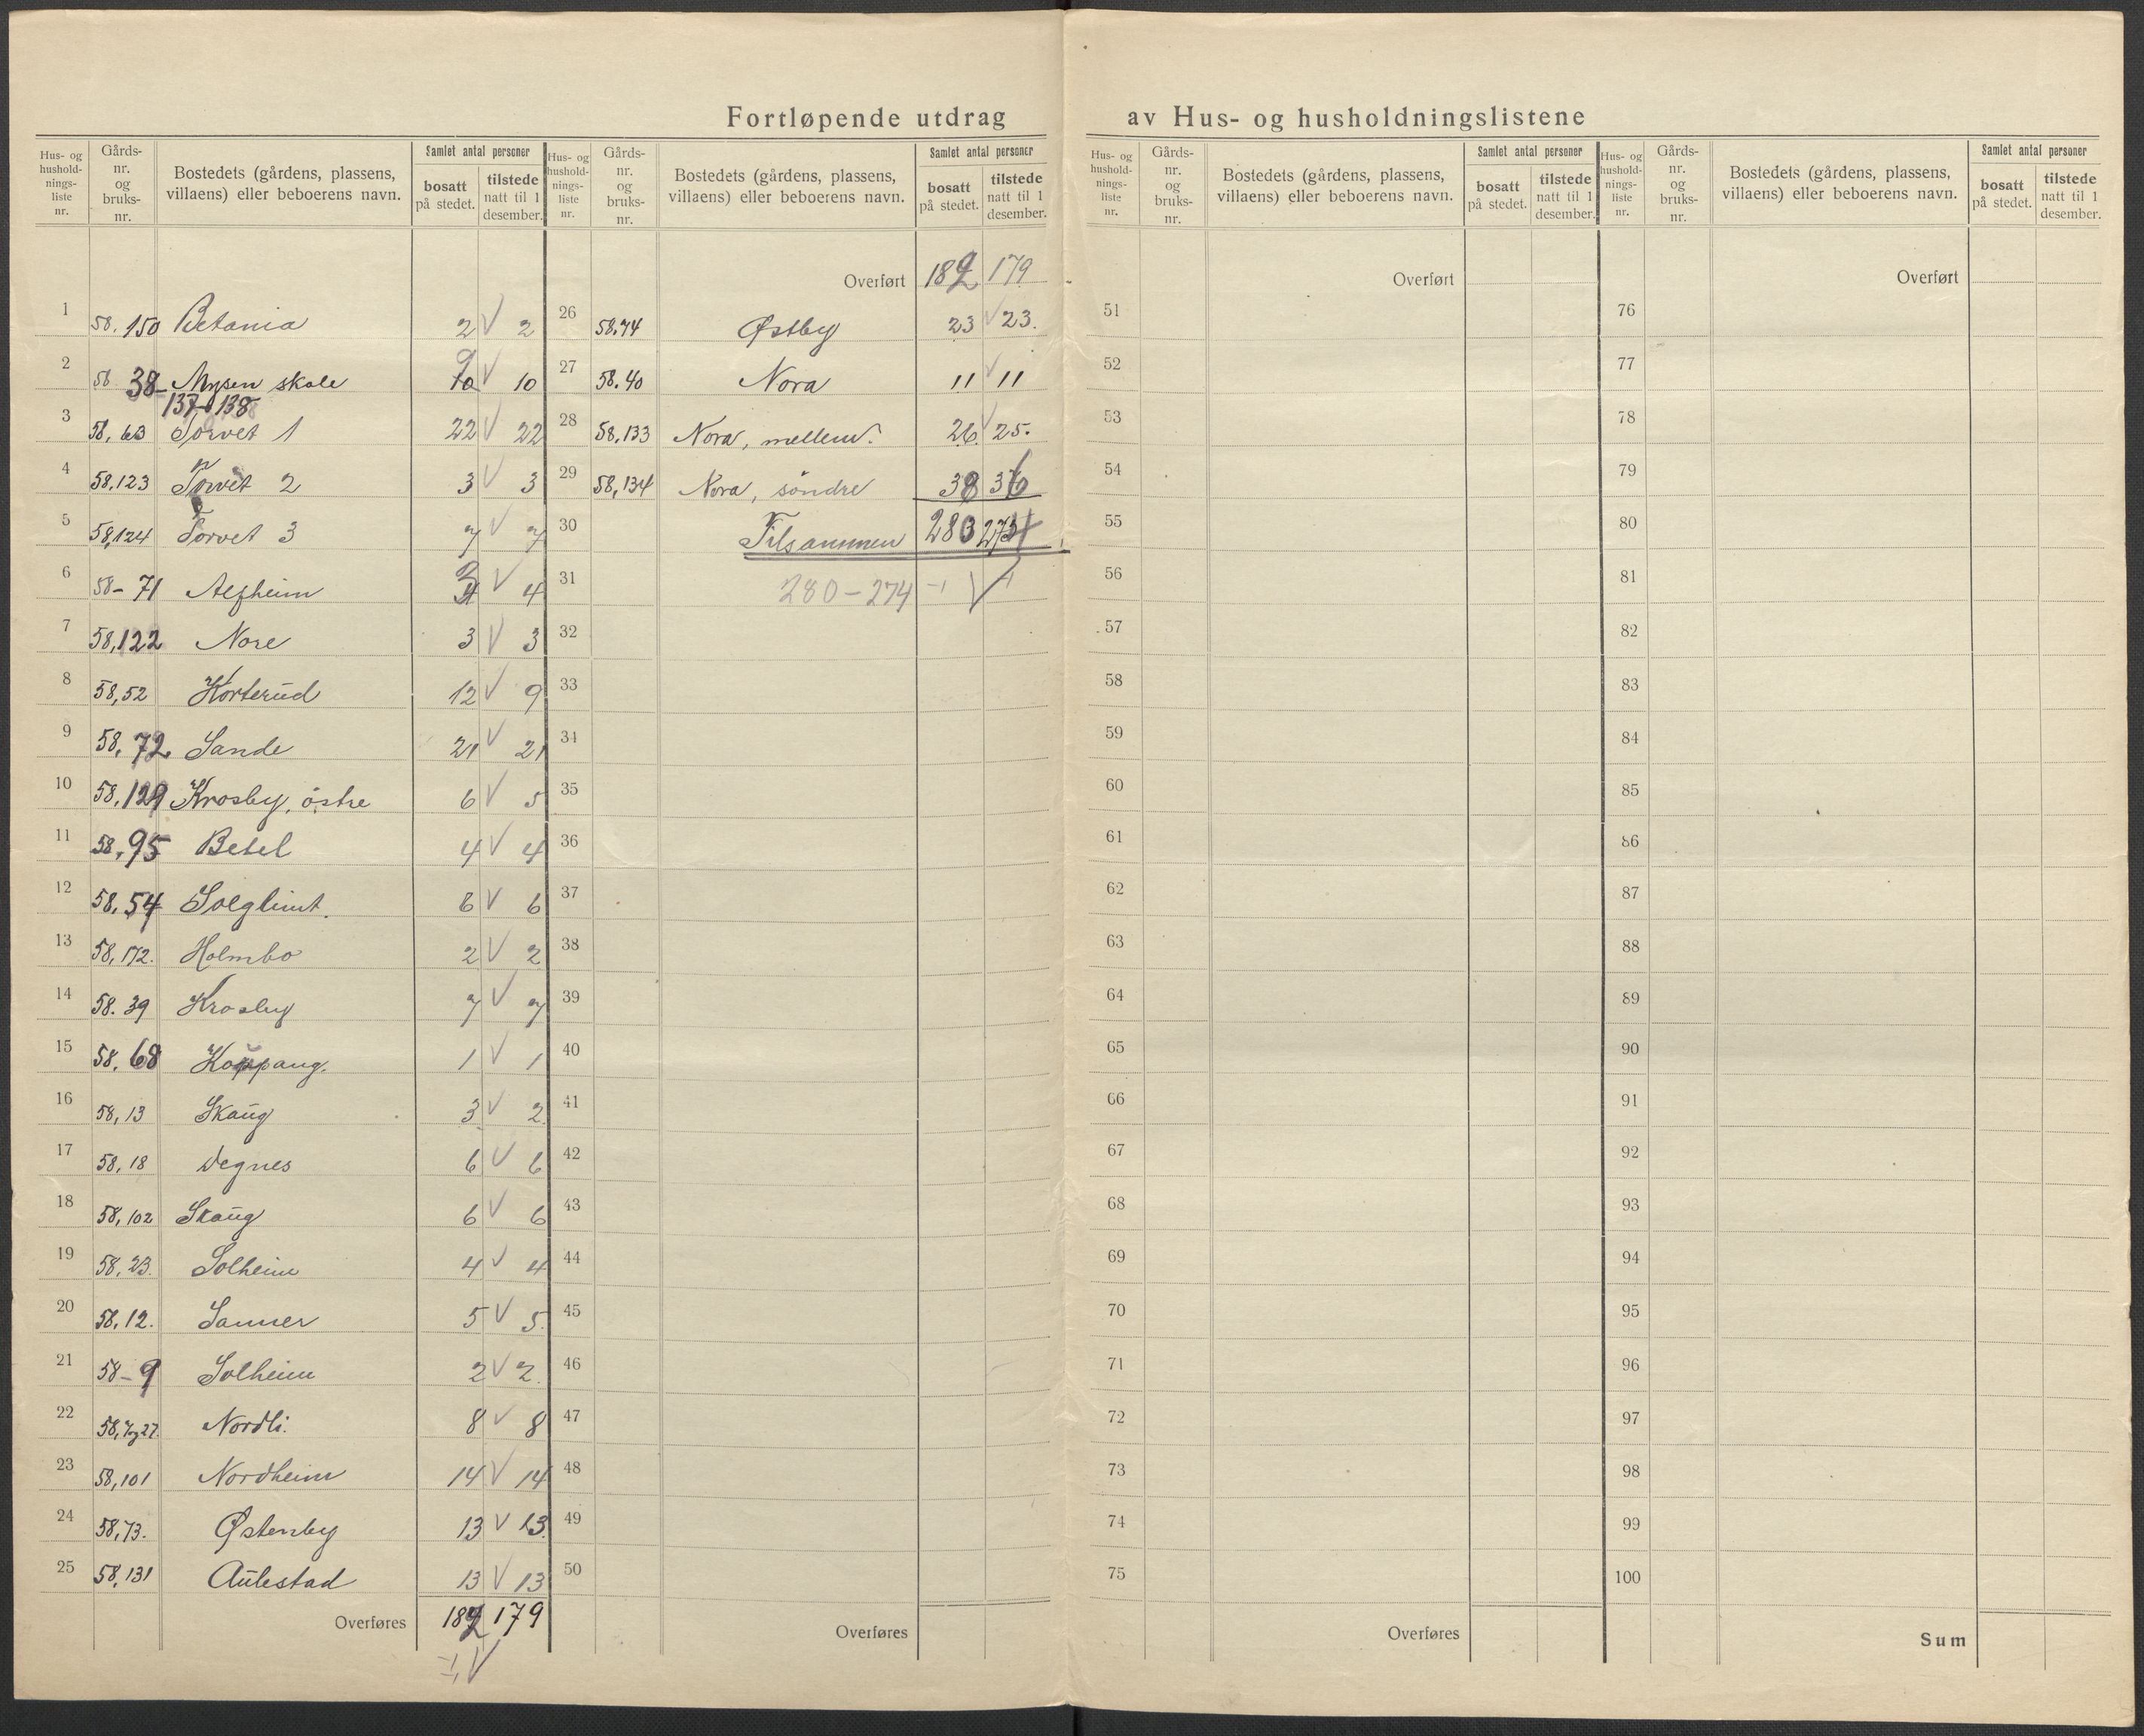 Fortløpende utdrag av Hus- og husholdningslistene
Hus- og hushold-nings-liste nr. Gårds-nr. og bruks-nr. Bostedets (gårdens, plassens, villaens) eller beboerens navn. Samlet antal personer bosatt på stedet. tilstede natt til 1 desember.
1 58. 150 Betania 2 V 2
2 58 38- Mysen skole 10 9 V 10
137-138
3 58, 63 Torvet 1 22 V 22
4 58,123 Torvet 2 3 V 3
5 58,124 Torvet 3 7 V 7
6 58- 71 Alfheim 3 V 4
7 58,122 Nore 3 V 3
8 58,52 Korterud 12 V 9
9 58. 72 Sande 21 V 21
10 58,129 Krosby, östre 6 V 5
11 58,95 Betel 4 V 4
12 58,54 Solglimt. 6 V 6
13 58,172. Holmbo 2 V 2
14 58. 39 Krosby 7 V 7
15 58. 68 Koppang. 1 V 1
16 58, 13 Skaug 3 V 2
17 58, 18 Degnes 6 V 6
18 58, 102 Skaug 6 V 6
19 58, 23. Solheim 4 V 4
20 58, 12. Sanner 5 V 5.
21 58-9 Solheim 2 V 2.
22 58, 7og27. Nordli. 8 V 8
23 58,101 Nordheim 14 V 14
24 58,73. Østenby 13 V 13.
25 58,131 Aulestad 13 V 13
Overføres 182 179
-1, V
Hus- og hushold-nings-liste nr. Gårds-nr. og bruks-nr. Bostedets (gårdens, plassens, villaens) eller beboerens navn. Samlet antal personer bosatt på stedet. tilstede natt til 1 desember.
Overført 182 179
26 58.74 Østby 23 V 23.
27 58. 40 Nora 11 V 11
28 58,133 Nora, mellem. 26 V 25.
29 58,134 Nora, söndre 38 36
30 Tilsammen 280 274
31 280-274 -1 V -1
32
33
34
35
36
37
38
39
40
41
42
43
44
45
46
47
48
49
50
Overføres
Hus- og hushold-nings-liste nr. Gårds-nr. og bruks-nr. Bostedets (gårdens, plassens, villaens) eller beboerens navn. Samlet antal personer bosatt på stedet. tilstede natt til 1 desember.
Overført
51
52
53
54
55
56
57
58
59
60
61
62
63
64
65
66
67
68
69
70
71
72
73
74
75
Overføres
Hus- og hushold-nings-liste nr. Gårds-nr. og bruks-nr. Bostedets (gårdens, plassens, villaens) eller beboerens navn. Samlet antal personer bosatt på stedet. tilstede natt til 1 desember.
Overført
76
77
78
79
80
81
82
83
84
85
86
87
88
89
90
91
92
93
94
95
96
97
98
99
100
Sum